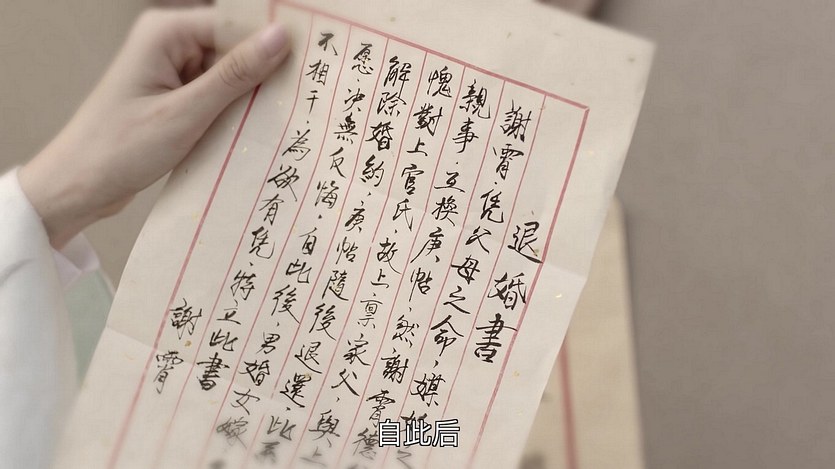 退婚書
謝霄．凭父母之命．媒妁之
親事．互換庚帖．然謝霄德
愧對上官氏．故上禀家父．與上
解除婚約．庚帖隨後退還．此系
愿．决無反悔．自此後．男婚女嫁
不相干．為欲有凭．特立此書
謝霄
自此后